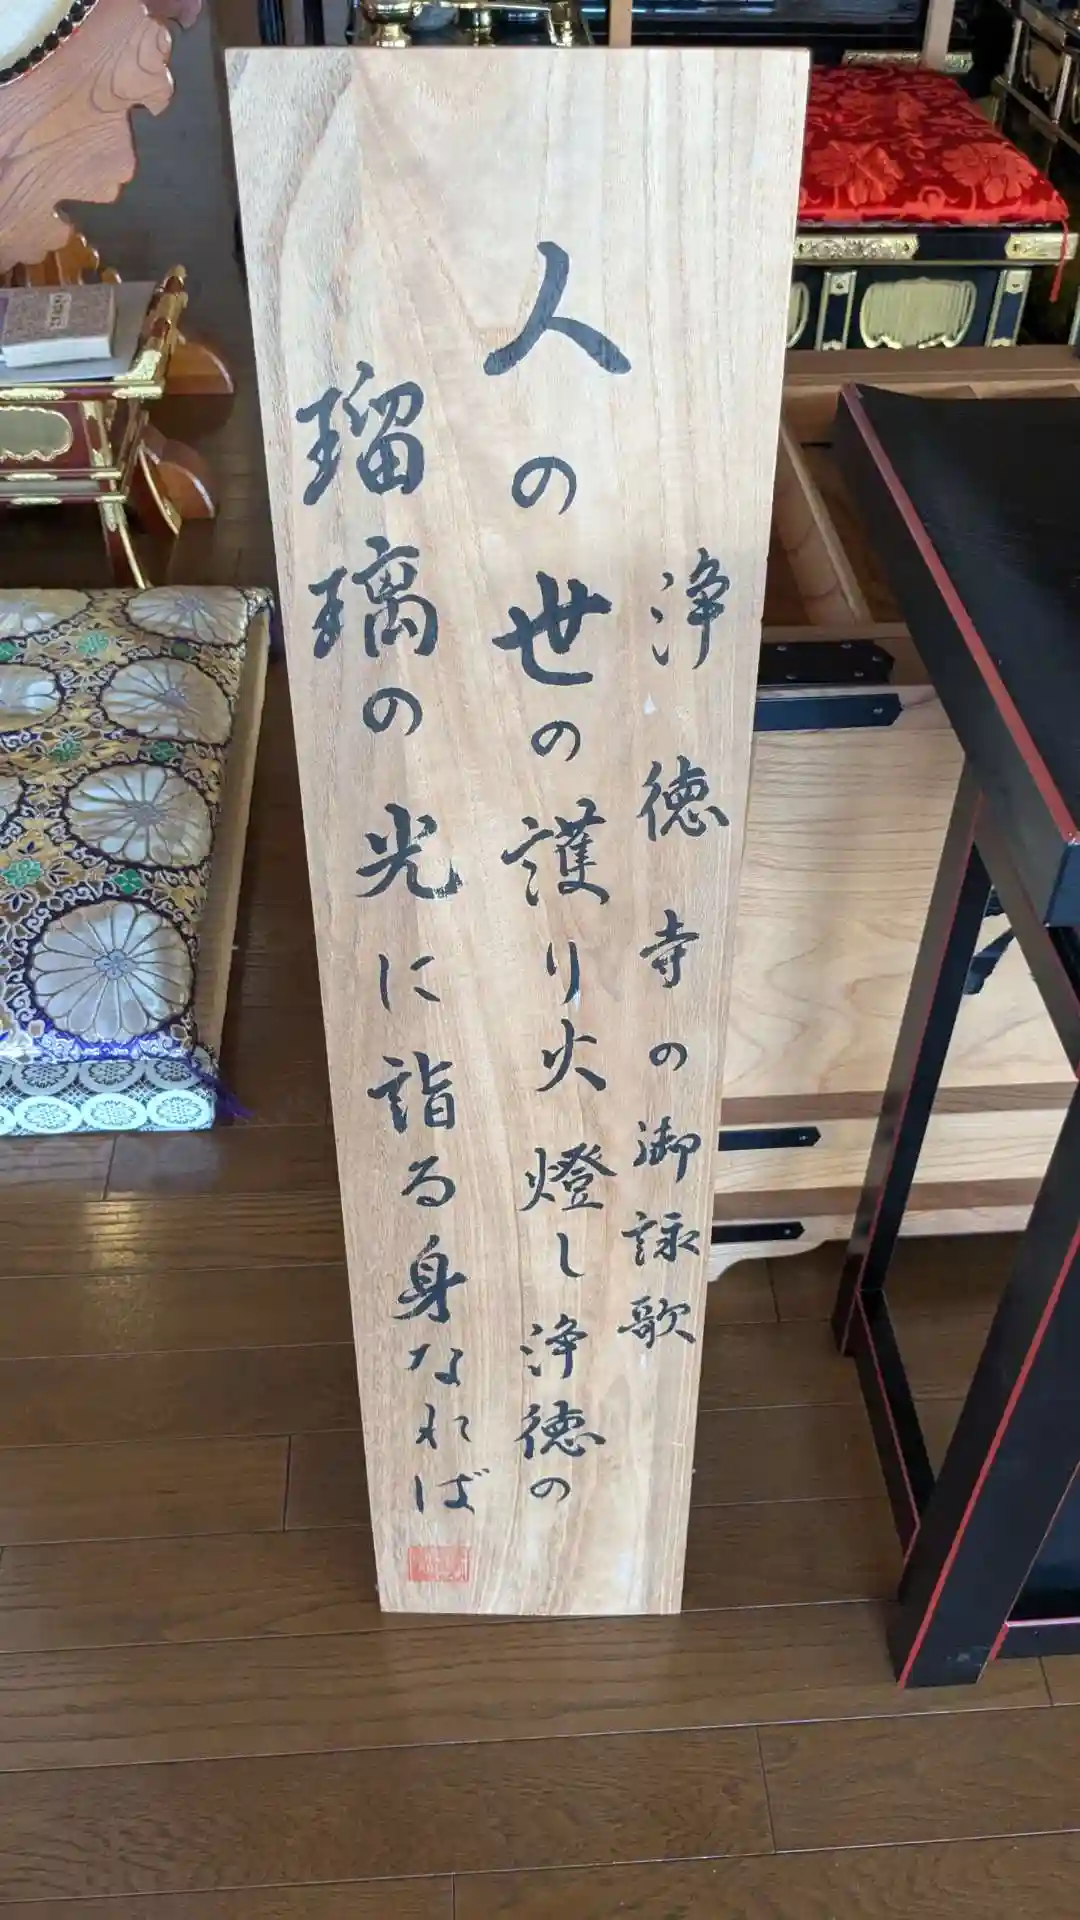 浄徳寺の御詠歌
人の世の護り火燈し浄徳の
瑠璃の光に詣る身なれば